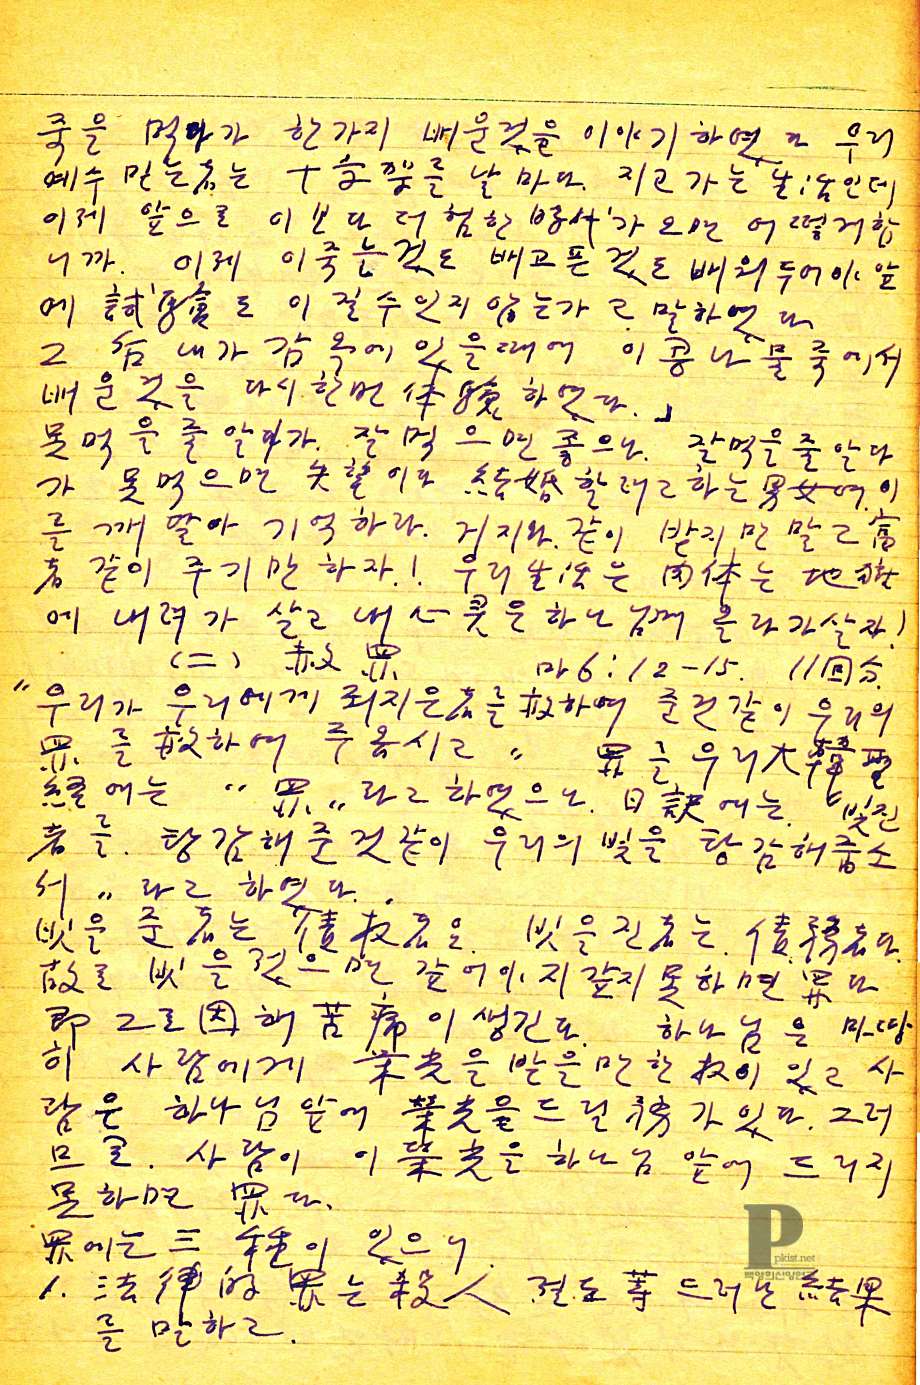 죽을 먹다가 한가지 배운것을 이야기하였다 우리
예수 믿는者는 十字架를 날마다. 지고가는 生活인데
이제 앞으로 이보다 더 험한 時代가 오면 어떻게합
니까. 이제 이죽는것도 배고픈것도 배워두어야 앞
에 試驗도 이길수있지 않는가고 말하였다
그 後 내가 감옥에 있을때에 이 콩나물죽에서
배운것을 다시한번 体驗하였다.」
못먹을줄 알다가. 잘 먹으면 좋으나. 잘먹을줄 알다
가 못먹으면 失望이다 結婚할려고하는 男女여. 이
를 깨달아 기억하라. 거지와. 같이 받지만 말고 富
者같이 주기만 하자.! 우리 生活은 肉体는 地獄
에 내려가 살고 내 心灵은 하나님께 올라가살자!
(二) 赦罪 마6:12-15. 11回分.
"우리가 우리에게 죄지은者를 赦하여 준것같이 우리의
罪를 赦하여 주옵시고" 罪를 우리大韓聖
經에는 "罪"라고 하였으나. 日訳에는. "빚진
者를. 탕감해준것같이 우리의 빚을 탕감해줍소
서" 라고 하였다.
빚을 준者는 債权者요. 빚을진者는. 債務者다.
故로 빚을 졌으면 갚어야지 갚지 못하면 罪다
即 그로因해 苦痛이 생긴다. 하나님은 마땅
히 사람에게 荣光을 받을만한 权이 있고 사
람은 하나님앞에 榮光을드릴 務가있다. 그러
므로. 사람이 이 榮光을 하나님 앞에 드리지
못하면 罪다.
罪에는 三種이 있으니.
1. 法律的罪는 殺人 절도 等 드러난 結果
를 말하고.
pkist.net